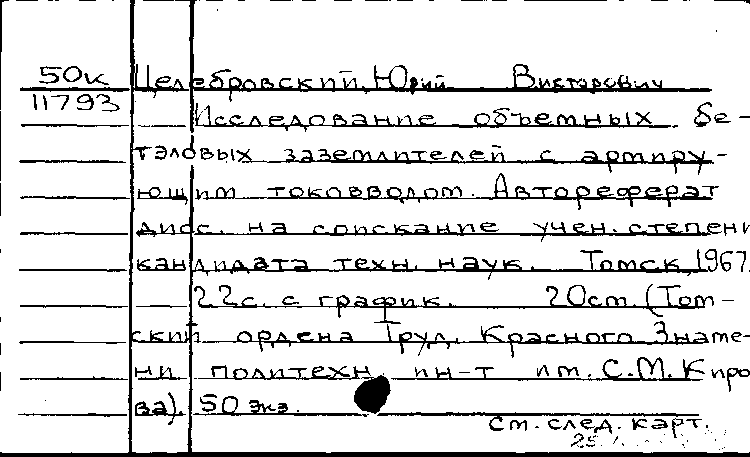 50к Целебровский, Юрий Викторович
11793
Исследование объемных бе-
тэловых заземлителей с армиру-
ющим токовводом. Автореферат
дисс. на соискание учен. степени
кандидата техн. наук. Томск, 1967.
22с. с график. 20см. (Том-
ский ордена Труд. Красного Знаме-
ни политехн. ин-т им. С.М. Киро
ва). 50 экз.
см. след. карт.